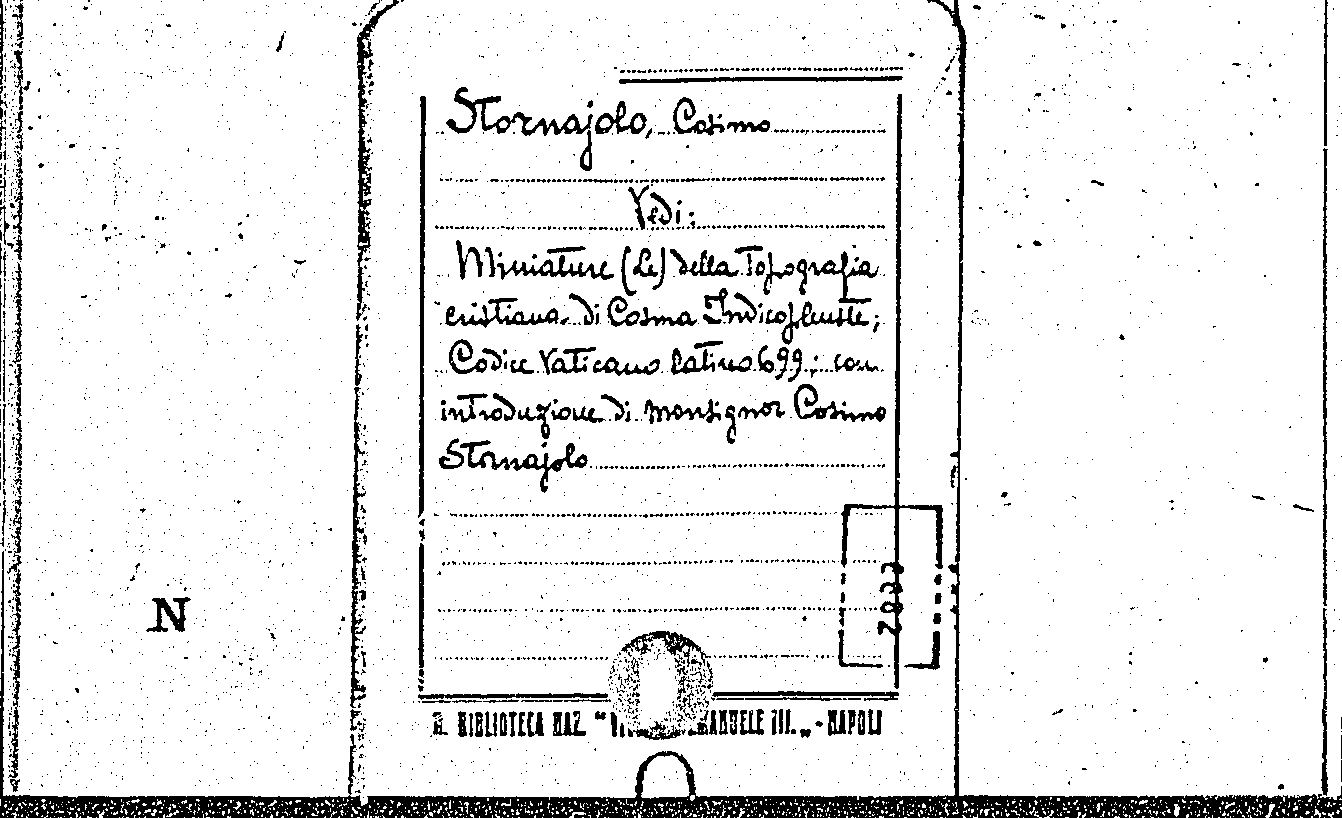 Stornajolo, Cosimo
Vedi:
Miniature (Le) della Topografia
cristiana di Cosma Indicopleuste;
Codice Vaticano latino 699; con
introduzione di monsignor Cosimo
Stornajolo
N
R. BIBLIOTECA NAZ. " EMANUELE III. „ - NAPOLI